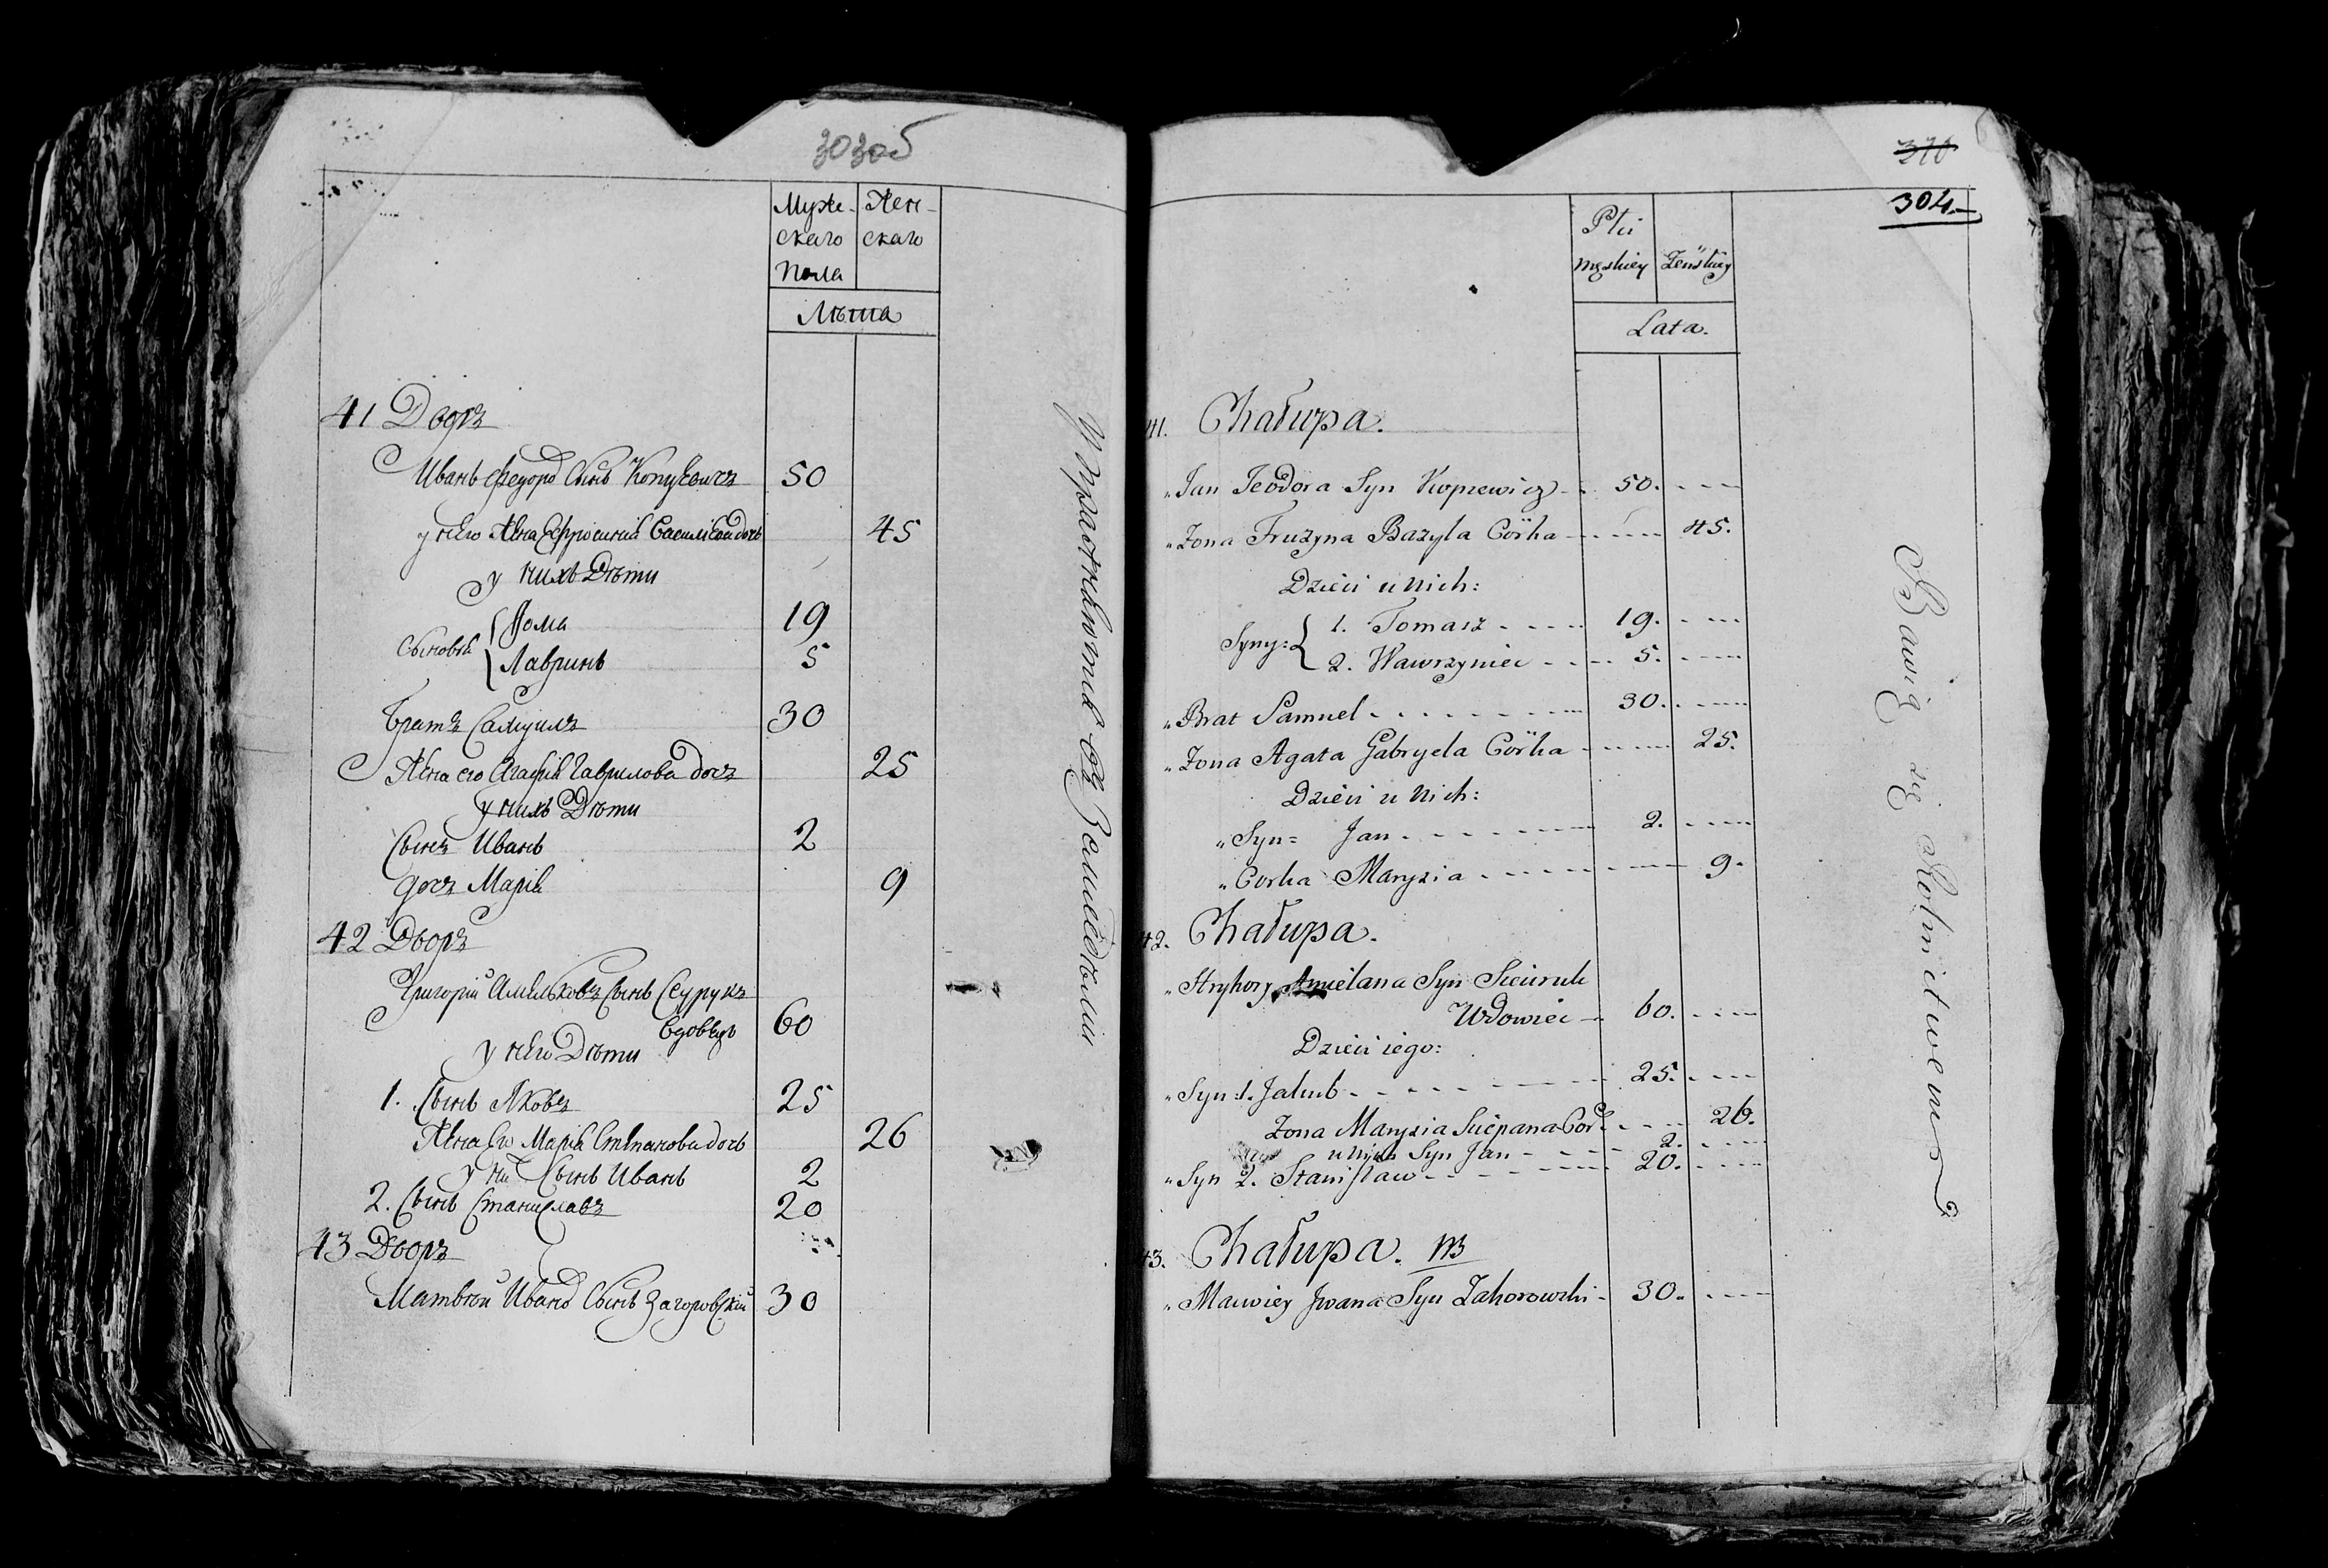 303об
Муже- Жен-
скаго скаго
Пола
Лѣта
41 Дворъ
Иванъ Федоров Сынъ Копцевичъ 50
у него Жена Ефросиния Василіева дочь 45
у нихъ Дѣти
Сыновья
Фома 19
Лавринъ 5
Братъ Самуилъ 30
Жена его Агафия Гаврилова дочъ 25
у нихъ Дѣти
Сынъ Иванъ 2
дочъ Марія 9
42 Дворъ
Григорій Амельковъ Сынъ Сцурукъ
Вдовецъ 60
у него Дѣти
1. Сынъ Яковъ 25
Жена Его Марія Степанова дочь 26
у ни Сынъ Иванъ 2
2. Сынъ Станиславъ 20
43 Дворъ
Матвѣй Иванов Сынъ Загоровскій 30
Упражняются въ Земледѣліи
370
304.
Płci
męskiey Żeńskiey
Lata.
41. Chałupa.
„Jan Teodora Syn Kopcewicz 50.
„Żona Fruzyna Bazyla Córka 45.
Dzieci u Nich:
Syny:
1. Tomasz 19.
2. Wawrzyniec 5.
„Brat Samuel 30.
„Żona Agata Gabryela Córka 25.
Dzieci u Nich:
„Syn= Jan 2.
„Corka Maryzia 9.
42. Chałupa.
„Hryhory Amelana Syn Sciuruk
Wdowiec 60.
Dzieci iego:
„Syn 1. Jakub 25.
Żona Maryzia Sciepana Cor 26.
u Nich Syn Jan 2.
„Syn 2. Stanisław 20.
43. Chałupa. NB
„Maciey Jwana Syn Zahorowski 30.
Bawią się Rolnictwem